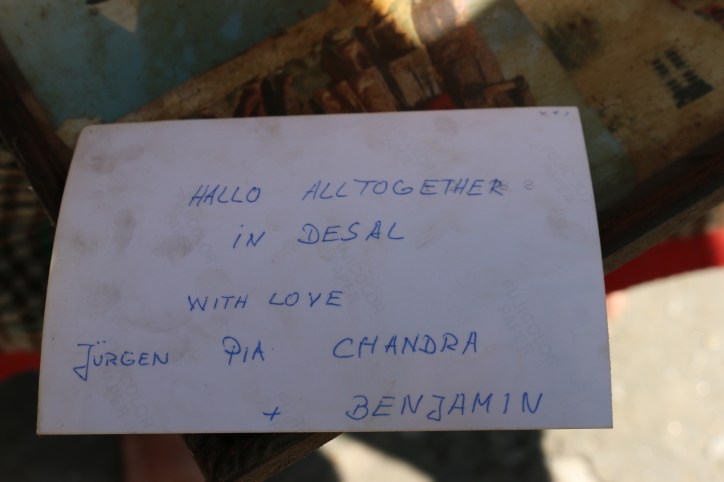 HALLO ALLTOGETHER
IN DESAL
WITH LOVE
JÜRGEN PIA CHANDRA
+ BENJAMIN